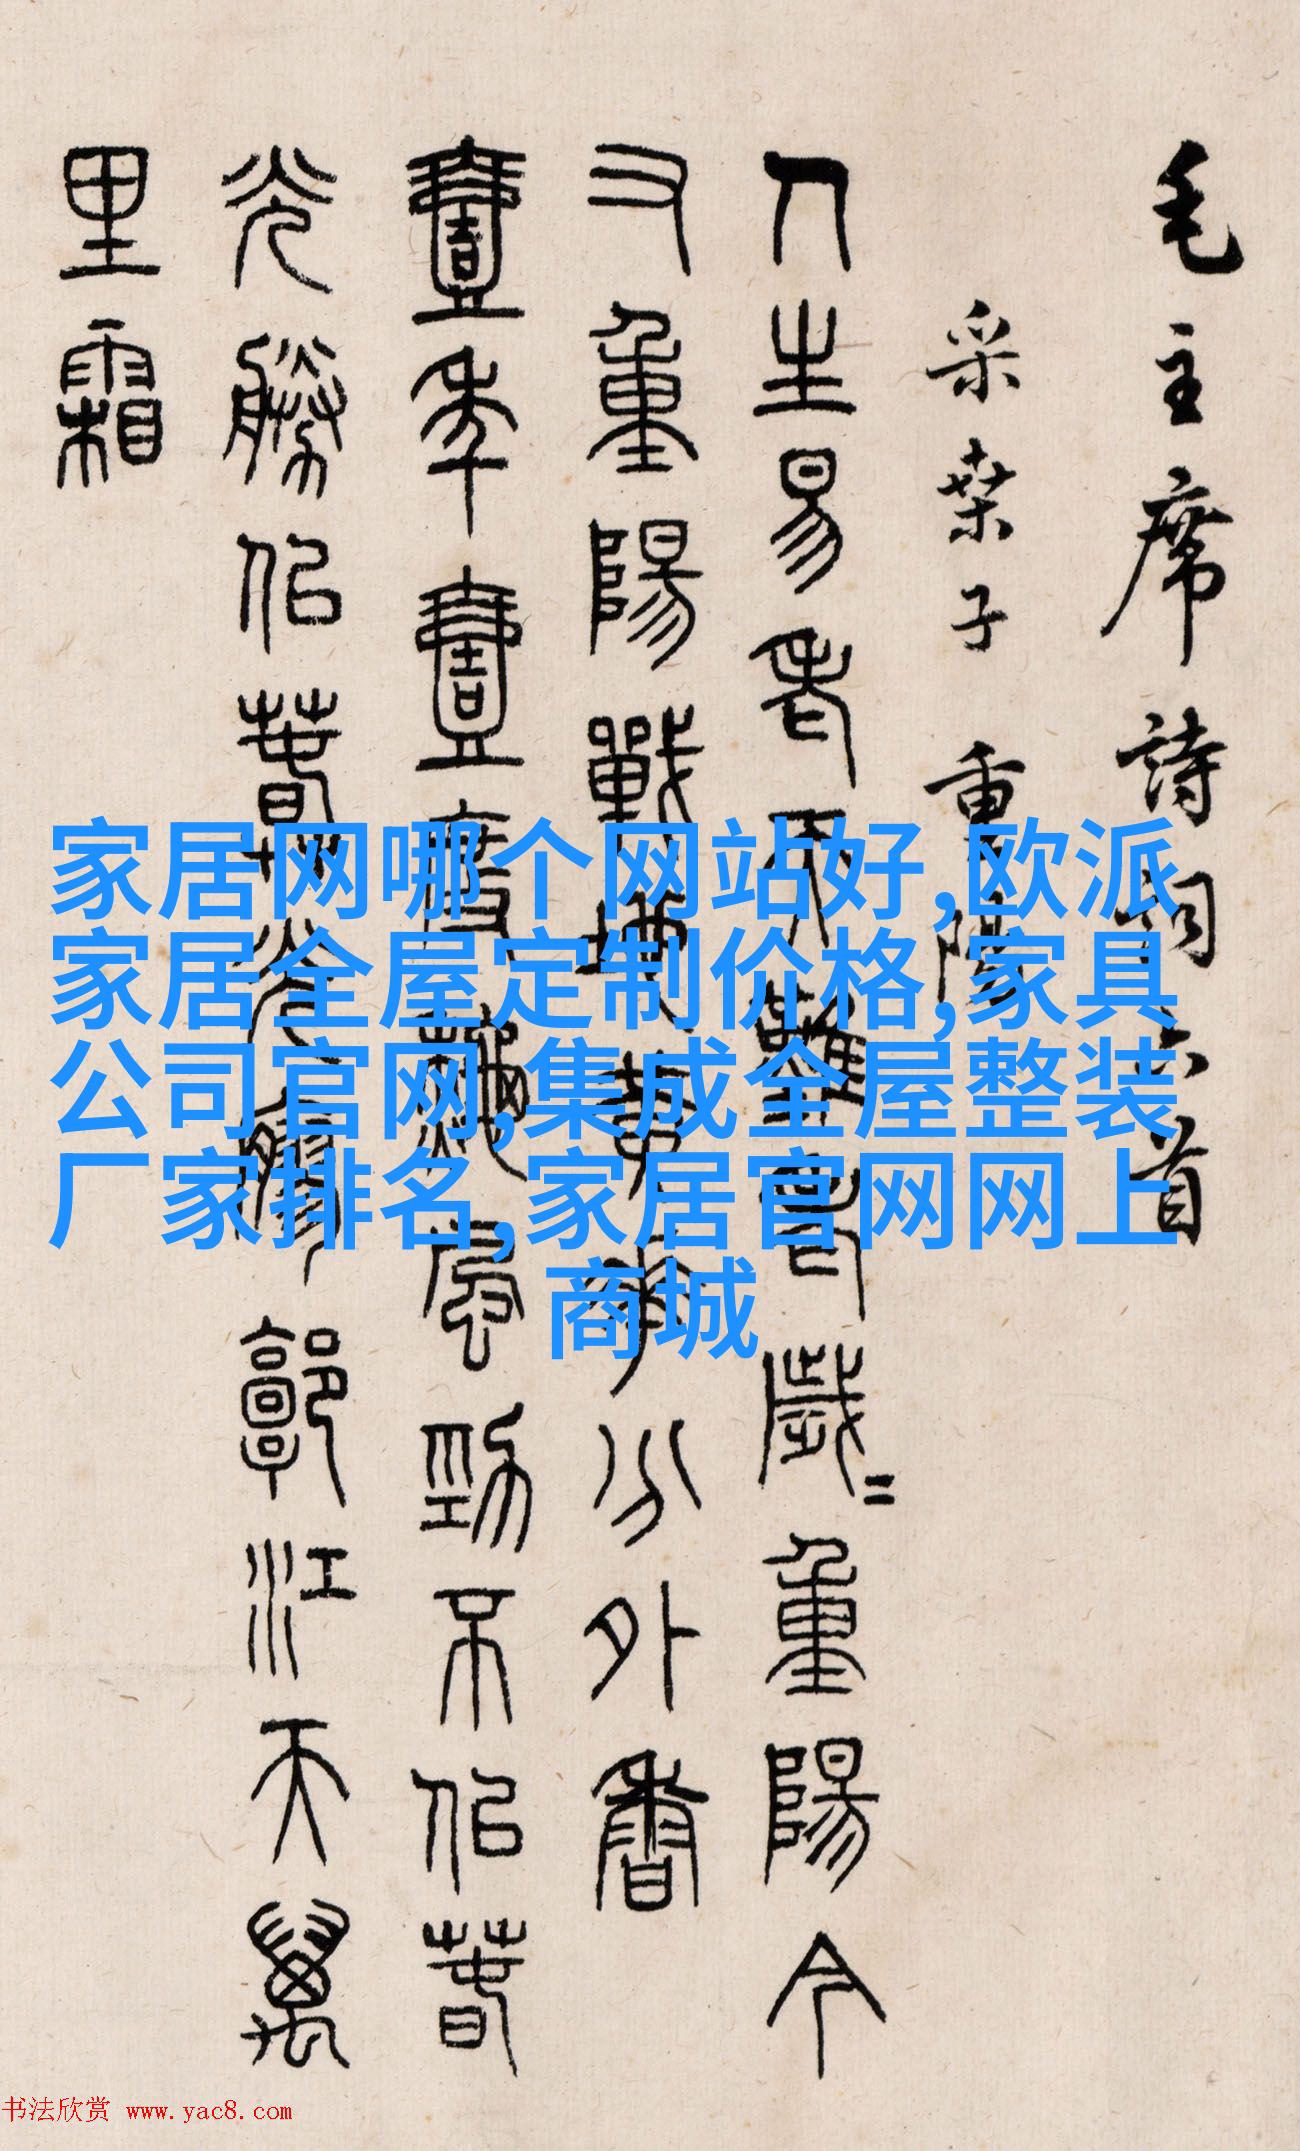 毛主席詩詞六首
采桒子 重陽
人生易老天難老歲〻重陽今
又重陽戰地黃華分外香
壹年壹度秋風勁不佀春
光勝佀春光寥郭江天萬
里霜
家居网哪个网站好,欧派
家居全屋定制价格,家具
公司官网,集成全屋整装
厂家排名,家居官网网上
商城
书法欣赏 www.yac8.com